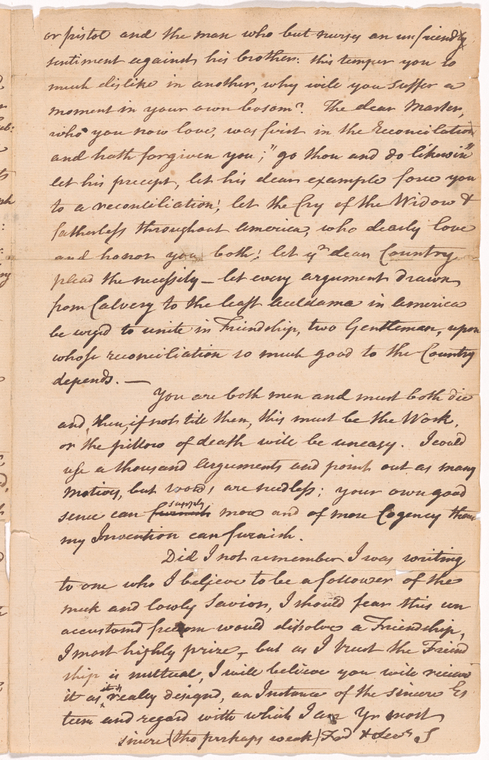 or pistol and the man who but nurses an unfriendly
sentiment against his brother: this temper you so
much dislike in another, why will you suffer a
moment in your own bosom? The dear Master,
whom you now love, was first in the Reconciliation
and hath forgiven you; "go thou and do likewise"
let his precept, let his dear example force you
to a reconciliation; let the Cry of the Widow &
fatherless throughout America, who dearly love
and honor you both; let yr dear Country
plead the necessity — let every argument drawn
from Calvery to the last Aceldama in America
be urg'd to unite in Friendship, two Gentlemen, upon
whose reconciliation so much good to the Country
depends. —
You are both men and must both die
and, then, if not till then, this must be the Work,
or the pillow of death will be uneasy. I could
use a thousand Arguments and point out as many
motives, but are needless; your own good
sense can furnish supply more and of more Cogency than
my Invention can furnish.
Did I not remember I was writing
to one who I believe to be a follower of the
meek and lowly Savior, I should fear this un
accustomd freedom would dissolve a Friendship,
I most highly prize, but as I trust the Friend
ship is mutual, I will believe you will receive
it as it is really design'd, an Instance of the sincere Es
teem and regard with which I am Yr most
sincere (tho perhaps weak) & S